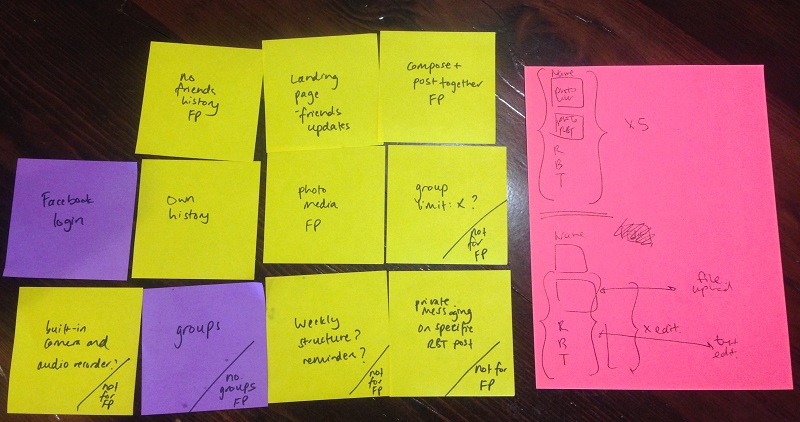 no
friends
history
FP
Landing
page
-friends
updates
compose +
post together
FP
Facebook
login
Own
history
photo
media
FP
group
limit: x ?
not
for
FP
built-in
camera and
audio recorder?
not
for
FP
groups
no
groups
FP
Weekly
structure?
reminder?
not
for
FP
private
messaging
on specific
RBT post
not for
FP
name
photo
user
photo
RBT
R
B
T
x 5
name
R
B
T
x edit
file
upload
text
edit